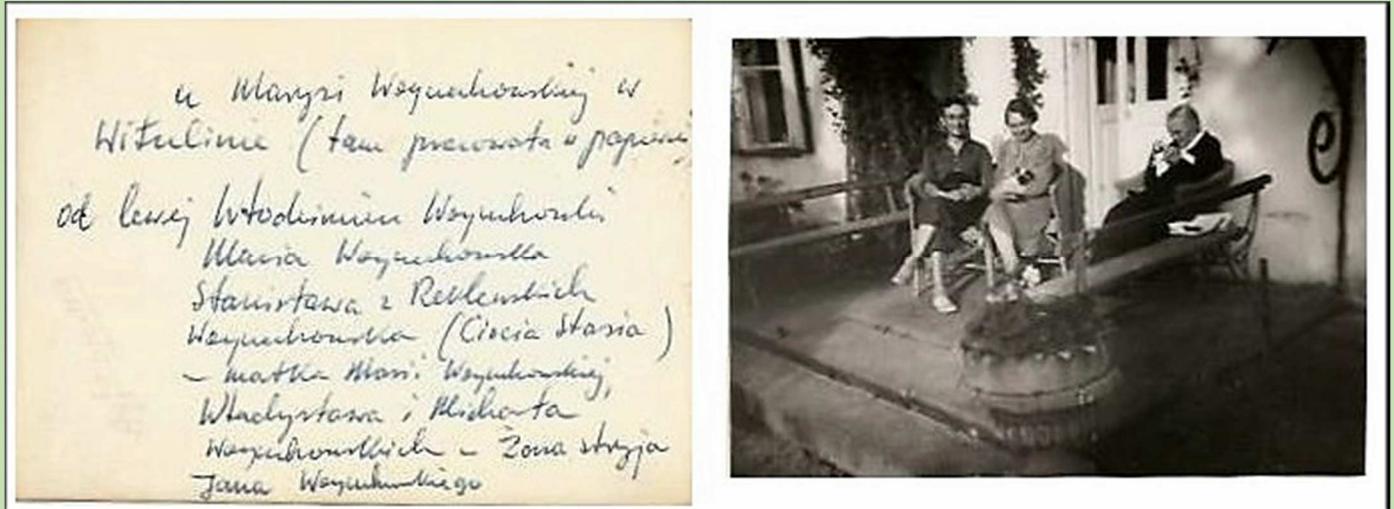 u Marysi Woyciechowskiej w
Witulinie (tam pracowała w
od lewej Włodzimierz Woyciechowski
Maria Woyciechowska
Stanisława z Reklewskich
Woyciechowska (Ciocia Stasia)
– matka Marii Woyciechowskiej,
Władysława i Michała
Woyciechowskich – Żona stryja
Jana Woyciechowskiego